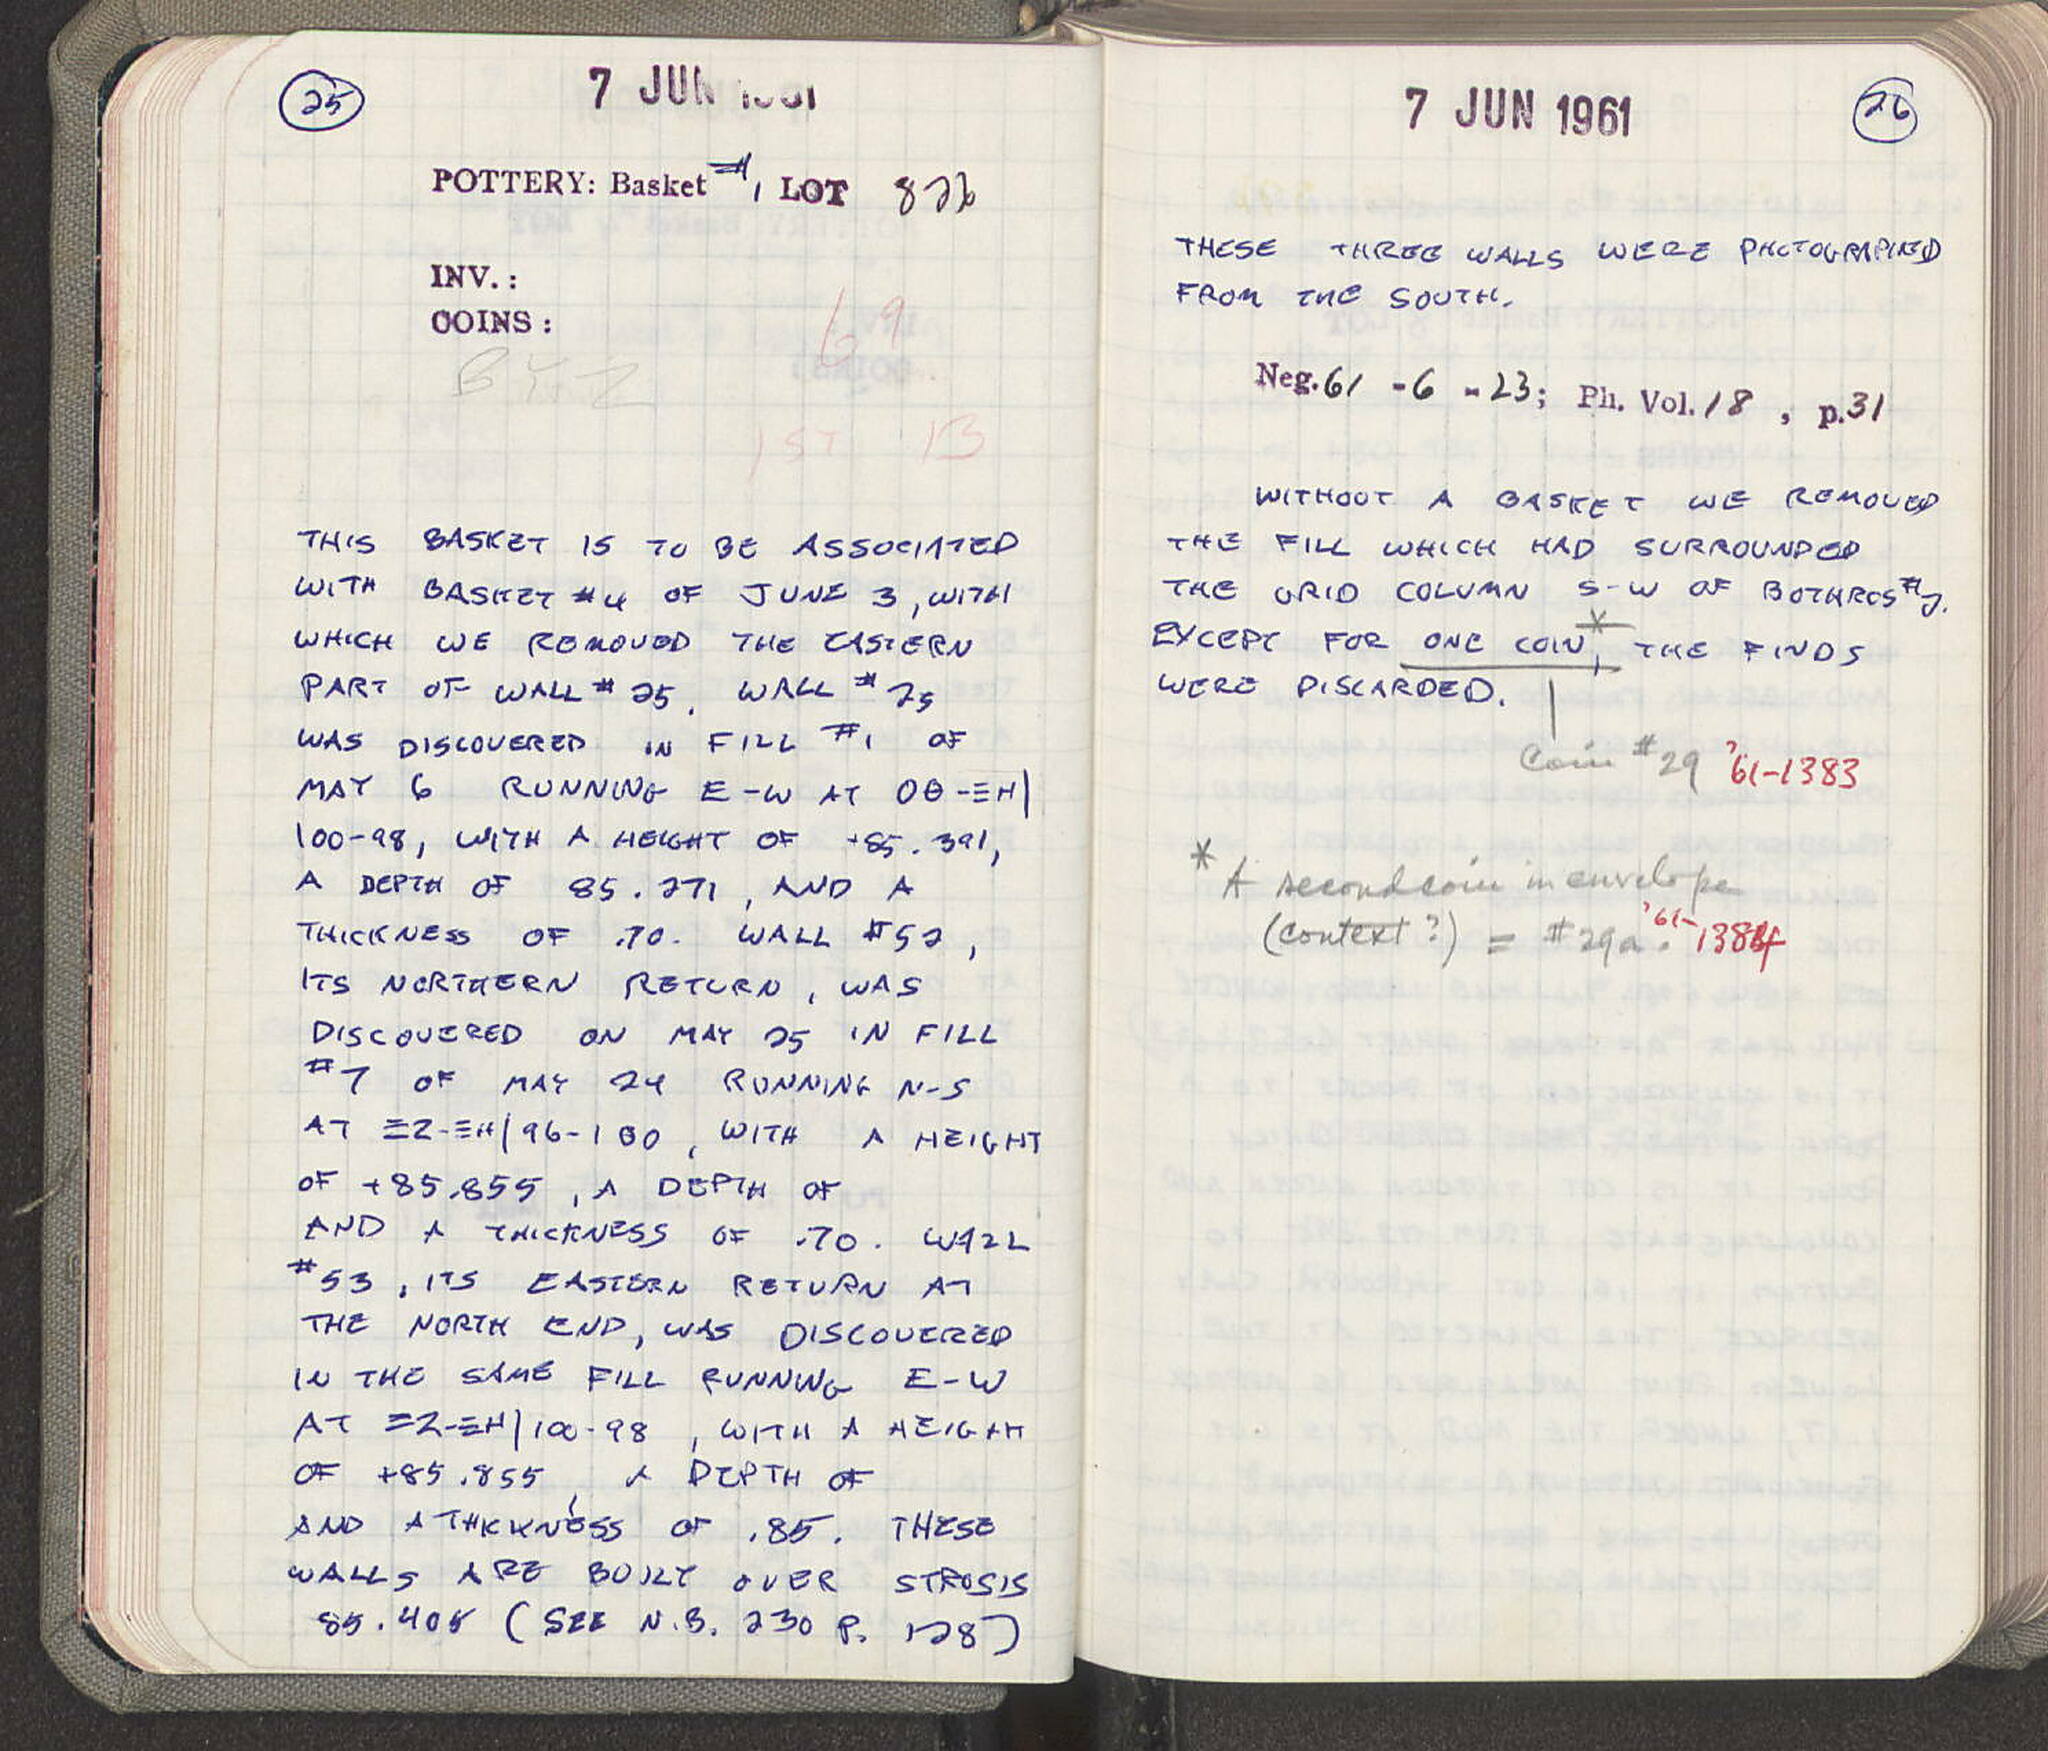 25
7 JUN 1961
POTTERY: Basket #1, LOT 826
INV.:
COINS:
69
BYZ
1ST 13
THIS BASKET IS TO BE ASSOCIATED
WITH BASKET #4 OF JUNE 3, WITH
WHICH WE REMOVED THE EASTERN
PART OF WALL #25. WALL #25
WAS DISCOVERED IN FILL #1 OF
MAY 6 RUNNING E-W AT ΟΘ-ΞΗ|
100-98, WITH A HEIGHT OF +85.391,
A DEPTH OF 85.271, AND A
THICKNESS OF .70. WALL #52,
ITS NORTHERN RETURN, WAS
DISCOVERED ON MAY 25 IN FILL
#7 OF MAY 24 RUNNING N-S
AT ΞΖ-ΞΗ|96-100, WITH A HEIGHT
OF +85.855, A DEPTH OF
AND A THICKNESS OF .70. WALL
#53, ITS EASTERN RETURN AT
THE NORTH END, WAS DISCOVERED
IN THE SAME FILL RUNNING E-W
AT ΞΖ-ΞΗ|100-98, WITH A HEIGHT
OF +85.855, A DEPTH OF
AND A THICKNESS OF .85. THESE
WALLS ARE BUILT OVER STROSIS
85.405 (SEE N.B. 230 P. 128)
26
7 JUN 1961
THESE THREE WALLS WERE PHOTOGRAPHED
FROM THE SOUTH.
Neg. 61-6-23; Ph. Vol. 18, p. 31
WITHOUT A BASKET WE REMOVED
THE FILL WHICH HAD SURROUNDED
THE GRID COLUMN S-W OF BOTHROS #7.
EXCEPT FOR ONE COIN*, THE FINDS
WERE DISCARDED.
Coin #29 '61-1383
* A second coin in envelope
(context?) = #29a. '61-1384